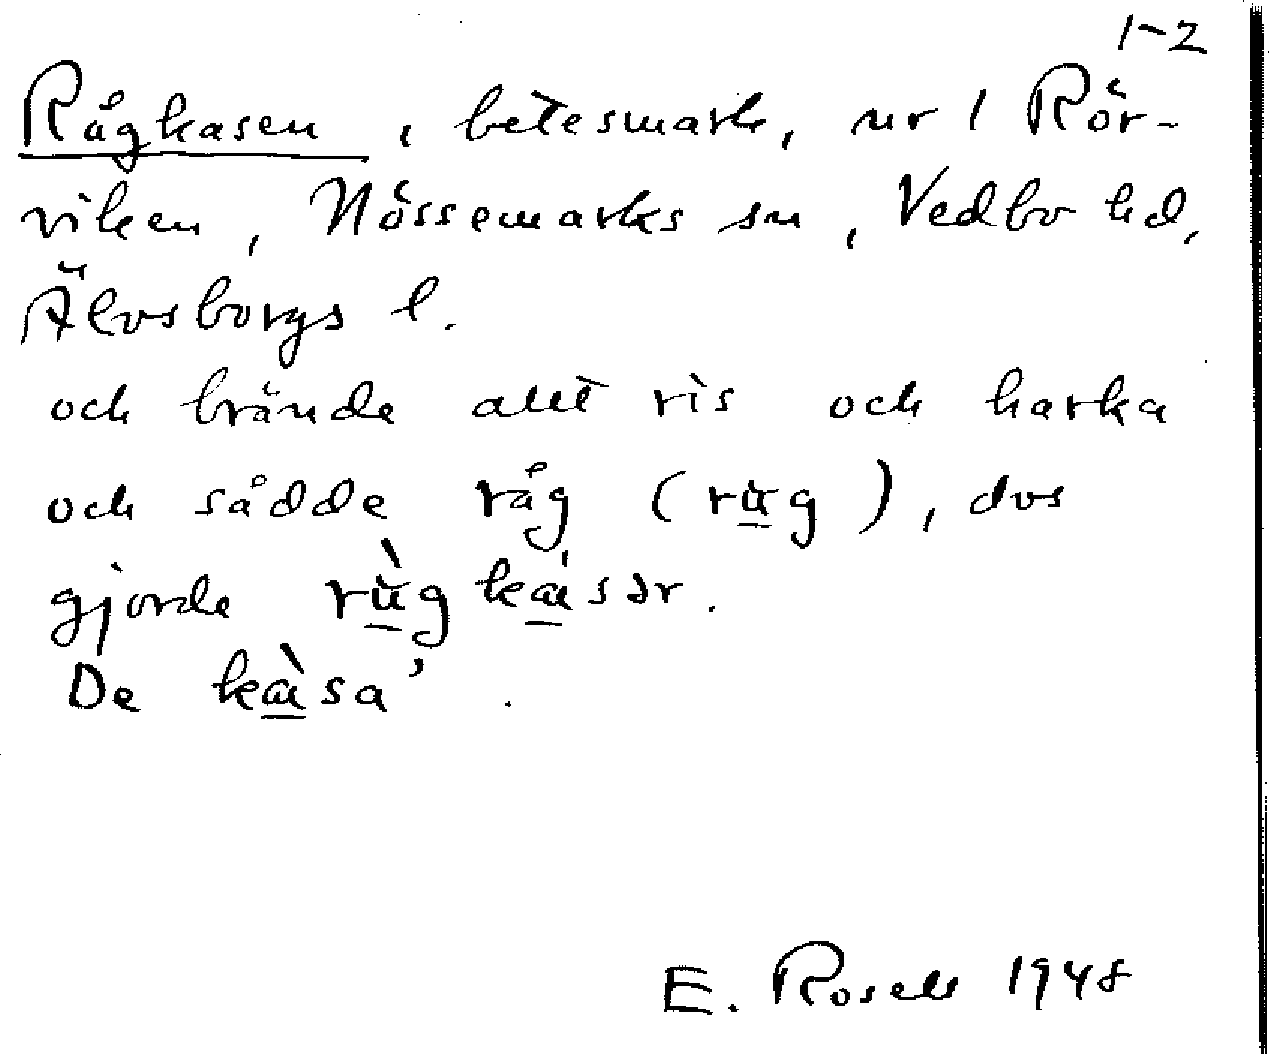 1-2
Rågkasen, betesmark, nr 1 Rör-
viken, Nössemarks sn, Vedbo hd,
Älvsborgs l.
och brände allt ris och harka
och sådde råg (rùg), dvs
gjorde rùgkásər.
De kàsa'.
E. Rosell 1948